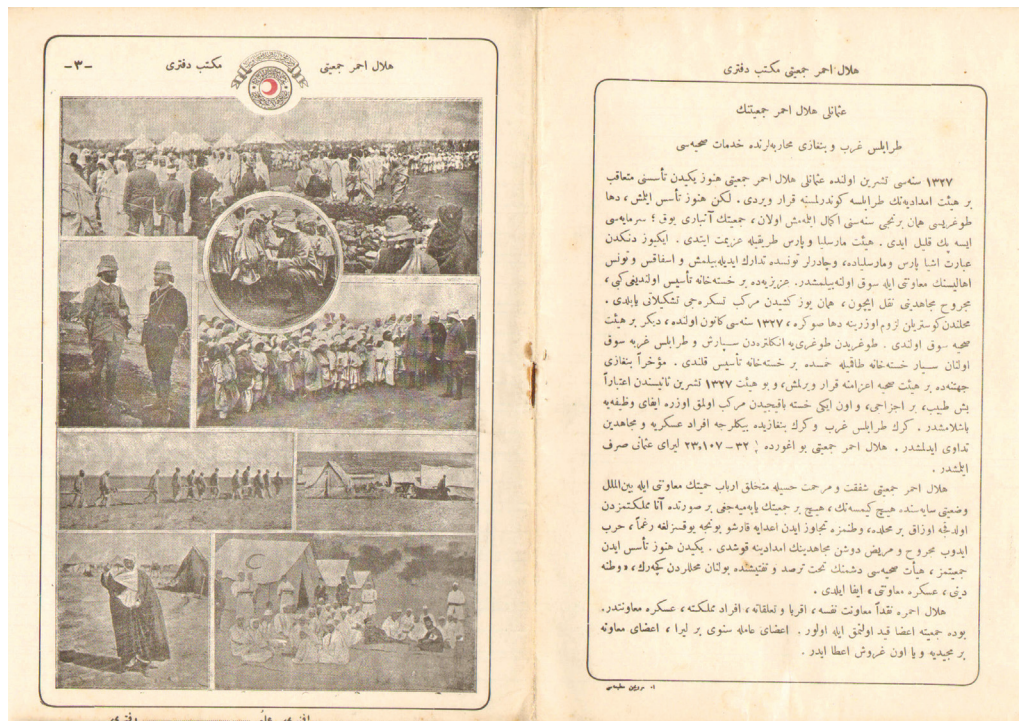 هلال احمر جمعیتی مكتب دفتری
عثمانلی هلال احمر جمعیتنك
طرابلس غرب و بنغازی محاربه‌لرنده خدمات صحیه‌سی
١٣٢٧ سنه‌سی تشرین اولنده عثمانلی هلال احمر جمعیتی هنوز یكیدن تأسسنی متعاقب
بر هیئت امدادیه‌نك طرابلسه كوندرلمسنه قرار ویردی . لكن هنوز تأسس ایتمش ، دها
طوغریسی همان برنجی سنه‌سنی اكمال ایله‌مش اولان ، جمعیتك آنباری یوق ؛ سرمایه‌سی
ایسه پك قلیل ایدی . هیئت مارسلیا و پارس طریقیله عزیمت ایتدی . ایكیوز دنكدن
عبارت اشیا پارس ومارسلیاده، وچادرلر تونسده تدارك ایدیله‌بیلمش و اسفاقس وتونس
اهالیسنك معاونتی ایله سوق اولنه‌بیلمشدر. عزیزیه‌ده بر خسته‌خانه تأسیس اولندیغی كبی ،
مجروح مجاهدینی نقل ایچون ، همان یوز كشیدن مركب تسكره‌جی تشكیلاتی یاپلدی .
محلندن كوستریلن لزوم اوزرینه دها صوكره ، ١٣٢٧ سنه‌سی كانون اولنده ، دیكر بر هیئت
صحیه سوق اولندی . طوغریدن طوغری‌یه انكلتره‌دن سپارش و طرابلس غربه سوق
اولنان سیار خسته‌خانه طاقمیله خمسده بر خسته‌خانه تأسیس قلندی . مؤخراً بنغازی
جهتنه‌ده بر هیئت صحیه اعزامنه قرار ویرلمش، و بو هیئت ١٣٢٧ تشرین ثانیسندن اعتباراً
بش طبیب، بر اجزاجی، و اون ایكی خسته باقیجیدن مركب اولمق اوزره ایفای وظیفه‌یه
باشلامشدر . كرك طرابلس غرب و كرك بنغازیده بیكلرجه افراد عسكریه و مجاهدین
تداوی ایدلمشدر . هلال احمر جمعیتی بو اغورده ٣٢-٢٣،١٠٧ لیرای عثمانی صرف
ایلشدر .
هلال احمر جمعیتی شفقت و مرحمت حسیله متخلق ارباب حمیتك معاونتی ایله بین‌الملل
وضعیتی سایه‌سنده هیچ كیمسه‌نك ، هیچ بر جمعیتك یاپه‌میه‌جغی بر صورتده آنا مملكتمزدن
اولدقجه اوزاق بر محلده، وطنمزه تجاوز ایدن اعدایه قارشو بونجه یوقسزلغه رغماً ، حرب
ایدوب مجروح و مریض دوشن مجاهدینك امدادینه قوشدی . یكیدن هنوز تأسس ایدن
جمعیتمز ، هیأت صحیه‌سی دشمنك تحت ترصد و تفتیشنده بولنان محللردن كچه‌رك ، « وطنه
دینی ، عسكره معاونتی » ایفا ایلدی .
هلال احمره نقداً معاونت نفسه ، اقربا و تعلقاته ، افراد مملكته ، عسكره معاونتدر.
بوده جمعیته اعضا قید اولنمق ایله اولور . اعضای عامله سنوی بر لیرا ، اعضای معاونه
بر مجیدیه و یا اون غروش اعطا ایدر .
هلال احمر جمعیتی
مكتب دفتری
-٣-